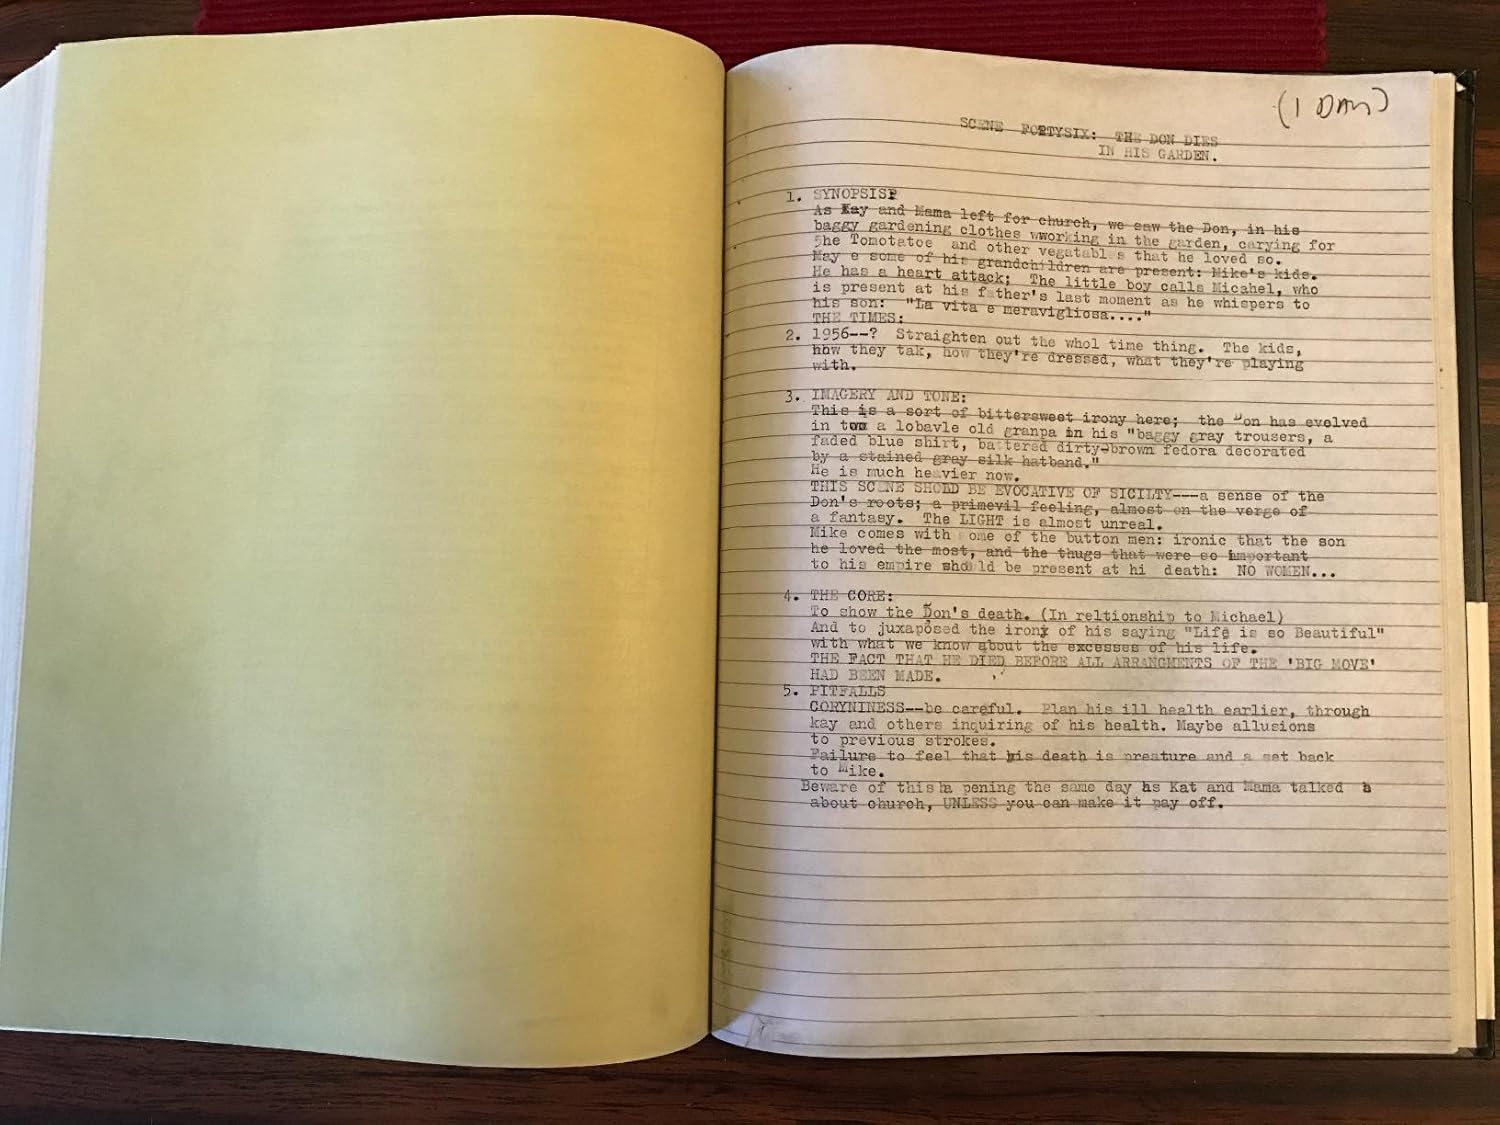 (1 DAY)
SCENE FORTYSIX: THE DON DIES
IN HIS GARDEN.
1. SYNOPSIS:
As Kay and Mama left for church, we saw the Don, in his
baggy gardening clothes wworking in the garden, carying for
the Tomotatoe and other vegatables that he loved so.
May e some of his grandchildren are present: Mike's kids.
He has a heart attack; The little boy calls Micahel, who
is present at his father's last moment as he whispers to
his son: "La vita e meravigliosa...."
THE TIMES:
2. 1956--? Straighten out the whol time thing. The kids,
how they tak, how they're dressed, what they're playing
with.
3. IMAGERY AND TONE:
This is a sort of bittersweet irony here; the Don has evolved
in too a lobavle old granpa in his "baggy gray trousers, a
faded blue shirt, battered dirty-brown fedora decorated
by a stained gray silk hatband."
He is much heavier now.
THIS SCENE SHOLD BE EVOCATIVE OF SICILTY---a sense of the
Don's roots; a primevil feeling, almost on the verge of
a fantasy. The LIGHT is almost unreal.
Mike comes with some of the button men: ironic that the son
he loved the most, and the thugs that were so important
to his empire should be present at hi death: NO WOMEN...
4. THE CORE:
To show the Don's death. (In reltionship to Michael)
And to juxaposed the irony of his saying "Life is so Beautiful"
with what we know about the excesses of his life.
THE FACT THAT HE DIED BEFORE ALL ARRANGMENTS OF THE 'BIG MOVE'
HAD BEEN MADE.
5. PITFALLS
CORYNINESS--be careful. Plan his ill health earlier, through
kay and others inquiring of his health. Maybe allusions
to previous strokes.
Failure to feel that his death is preature and a set back
to Mike.
Beware of this ha pening the same day as Kat and Mama talked
about church, UNLESS you can make it pay off.